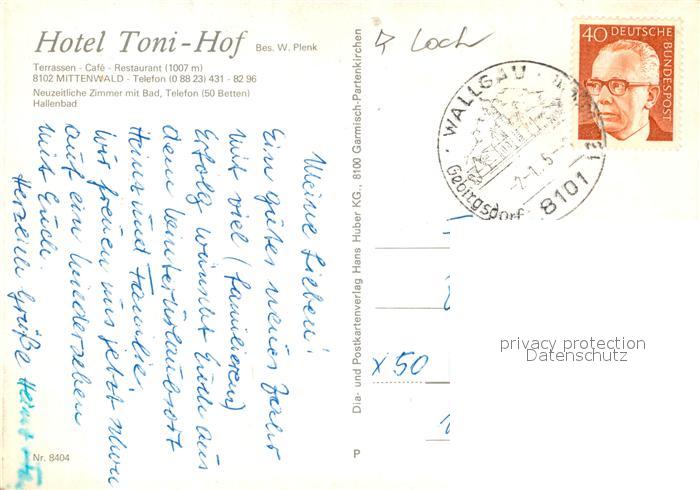 Hotel Toni-Hof Bes. W. Plenk
Terrassen - Café - Restaurant (1007 m)
8102 MITTENWALD - Telefon (0 88 23) 431 - 82 96
Neuzeitliche Zimmer mit Bad, Telefon (50 Betten)
Hallenbad
Meine Lieben!
Ein gutes neues Jahr
mit viel (familieren)
Erfolg wünscht Euch aus
dem Winterurlaubsort
Heinz und Familie.
Wir freuen uns jetzt schon
auf ein Wiedersehen
mit Euch.
Herzlich Grüße Heinz
Nr. 8404
Dia- und Postkartenverlag Hans Huber KG., 8100 Garmisch-Partenkirchen
P
Loch
WALLGAU
-2-1.5-
Gebirgsdorf
8101
40 DEUTSCHE
BUNDESPOST
x 50
privacy protection
Datenschutz